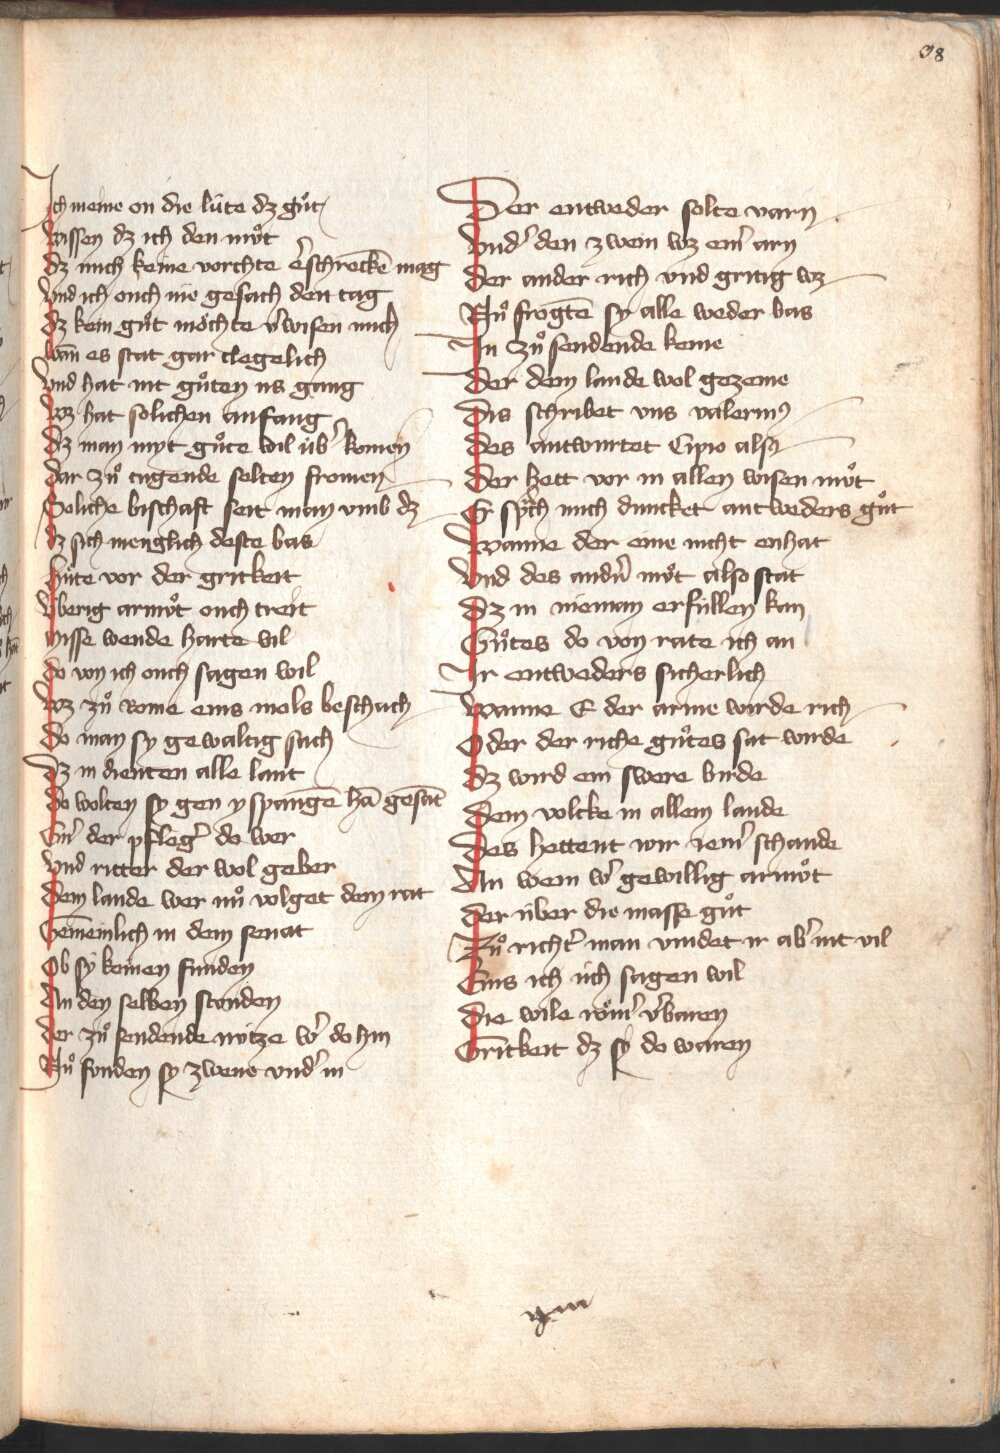 98
Ich meine on die lüte dz gůt
wissen dz ich den můt
dz mich keine vorchte e᷑schrecke̅ mag
Vnd ich ouch nie gesach den tag
dz kein gůt möchte v᷑wisen mich
wan̅ es stat gar clegelich
Vnd hat nit gůten us gang
wz hat solichen anfang
dz man myt gůte wil üb᷑ komen
dar zů tugende selten fromen
Soliche bischaft seit man vmb dz
dz sich menglich deste bas
hüte vor der gritkeit
Vberig armůt ouch treit
misse wende harte vil
do von ich ouch sagen wil
wz zů Rome eins mols beschach
do man sy gewaltig sach
dz in dienten alle lant
do wolten sy gen yspange̅ ha̅ gesa̅t
Ein᷑ der pfleg᷑ do wer
Vnd ritter der wol geber
dem lande wer nů volget dem rat
Gemeinlich in dem senat
Ob sy keinen funden
An den selben stonden
der zů sendende nütze w᷑ do hin
Nů fonden sy zwene vnd᷑ in
Der entweder solte varn
Vnd᷑ den zwein wz ein᷑ arn
der ander rich vnd gritig wz
Nů frogte̅ sy alle weder bas
In zů sendende keme
der dem lande wol gezeme
dis schribet vns valerius
des antwurtet Cipio also
der hett vor in allen wisen můt
Er sp̅ch mich duncket antweders gůt
wanne der eine nicht enhat
Vnd des and᷑n můt also stat
dz in nieman erfüllen kan
Gůtes do von rate ich an
Ir entweders sicherlich
wanne E der arme wirde rich
Oder der riche gůtes sat wirde
dz wird ein swere birde
dem volcke in allem lande
des hettent wir iem᷑ schande
An wem w᷑ gewillig armůt
der über die masse gůt
Zů richt᷑ man vindet ir ab᷑ nit vil
Eins ich üch sagen wil
die wile röm᷑ v᷑baren
Gritkeit dz sy do waren